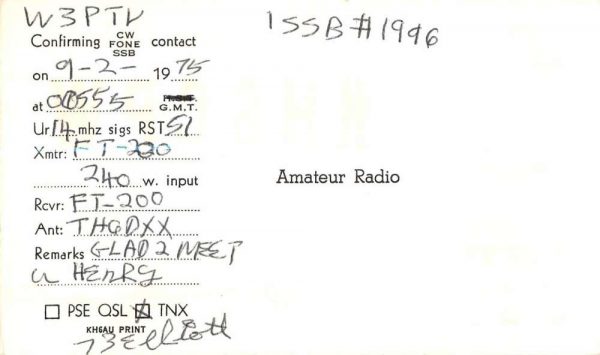 W3PTV
ISSB#1996
Confirming CW FONE SSB contact
on 9-2- 1975
at 00555 G.M.T.
Ur 14 mhz sigs RST 51
Xmtr: FT-200
240 w. input
Amateur Radio
Rcvr: FT-200
Ant: TH6DXX
Remarks GLAD 2 MEET
u HENRY
PSE QSL TNX
KH6AU PRINT
73 Elliott